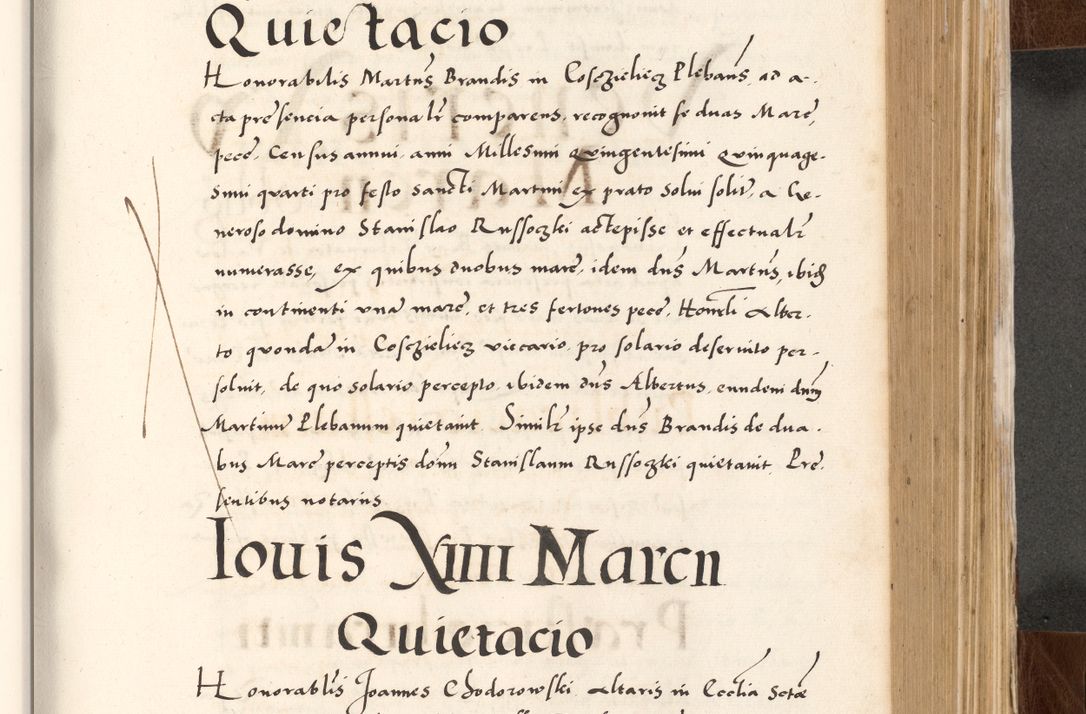 Quietacio
Honorabilis Martñs Brandis in Cosczieliecz Plebañs, ad a-
cta presencia personalr comparens, recognouit se duas Marc,
pecc, Census annui, anni Millesimi Quingentesimi Quinquage-
simi quarti pro festo Sancti Martini ex prato Solui solit, a Ge-
neroso domino Stanislao Russoczki accepisse et effectualr
numerasse, ex quibus duobus marc, idem dns Martñs, ibid
in continenti vna marc, et tres fertones pecc, Honrli Alber-
to quonda in Cosczieliecz viccario, pro solario deseruito per-
soluit, de quo solario percepto, ibidem dns Albertus, eundem dnm
Martinu Plebanum quietauit. Similr ipse dns Brandis de dua-
bus Marc perceptis domn Stanislaum Russoczki quietauit. Pre-
sentibus notarius
Iouis XIIII Marcii
Quietacio
Honorablis Joannes Chodorowski Altaris in Ecclia Sctæ